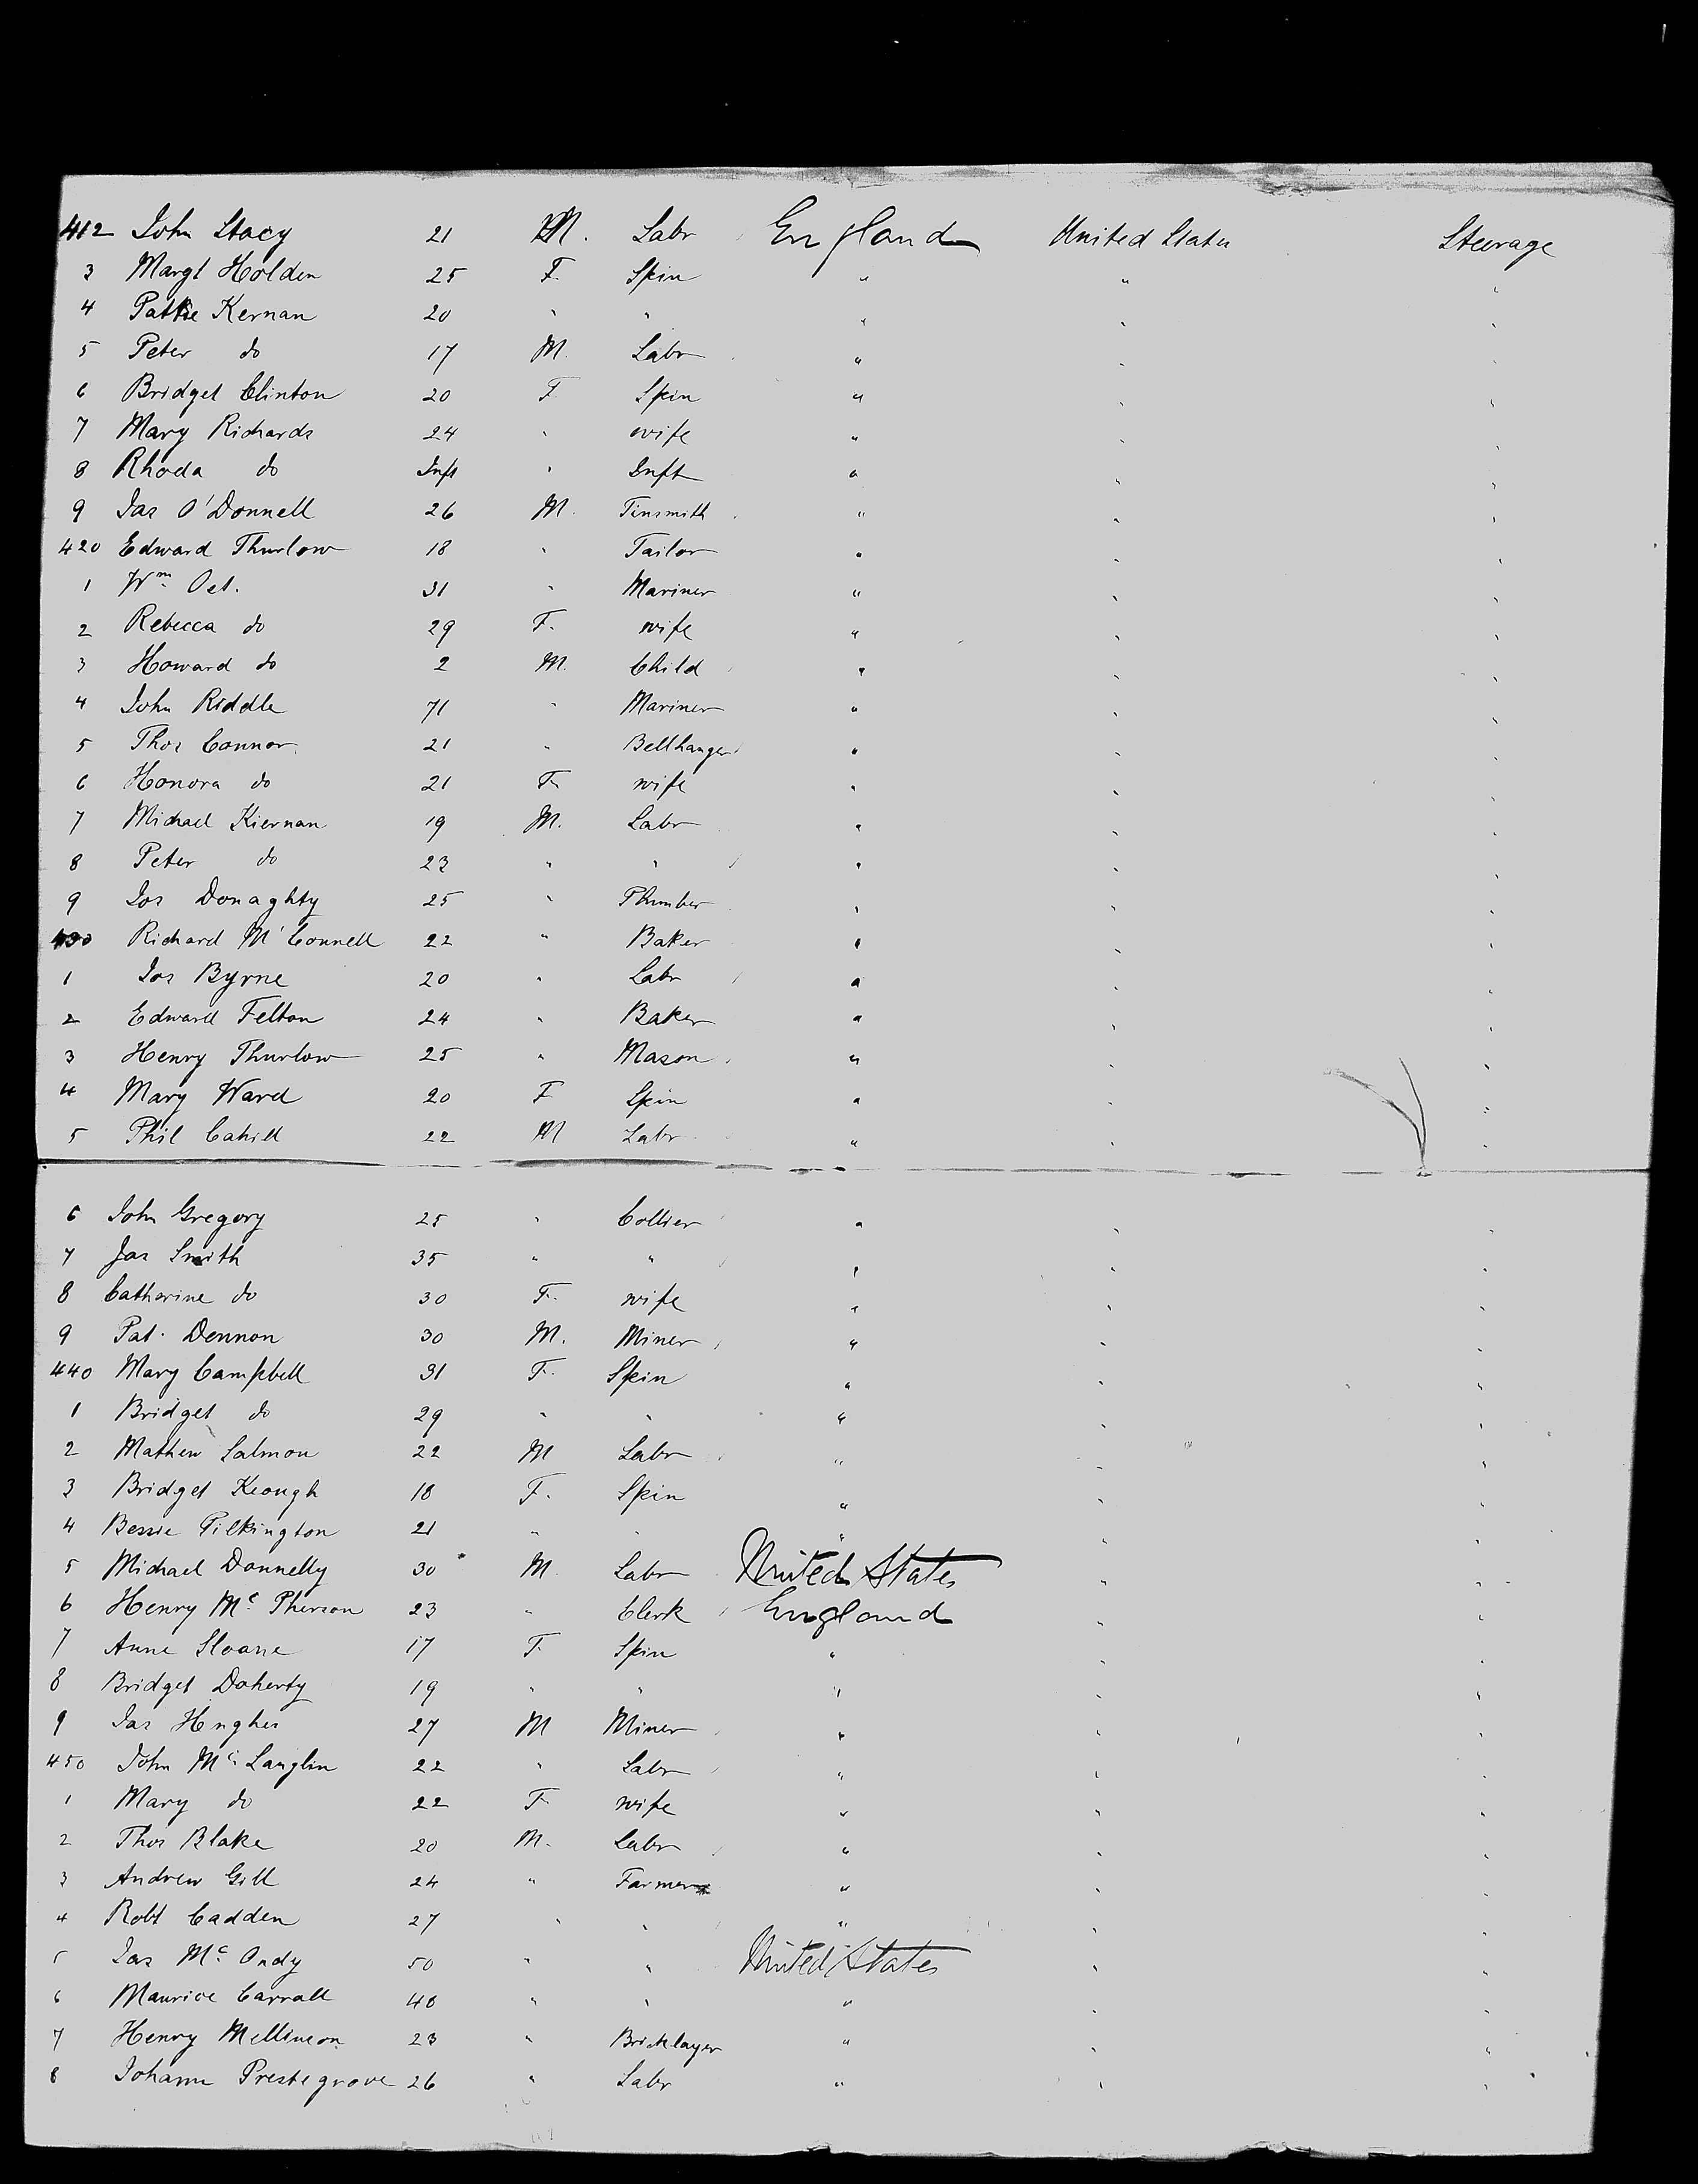 412 John Stacy 21 M. Labr England United States Steerage
3 Margt Holden 25 F Spin " " "
4 Pattie Kernan 20 " " " " "
5 Peter do 17 M. Labr " " "
6 Bridget Clinton 20 F Spin " " "
7 Mary Richards 24 " wife " " "
8 Rhoda do Inft " Inft " " "
9 Jas O'Donnell 26 M. Tinsmith " " "
420 Edward Thurlow 18 " Tailor " " "
1 Wm Oet. 31 " Mariner " " "
2 Rebecca do 29 F. wife " " "
3 Howard do 2 M. Child " " "
4 John Riddle 71 " Mariner " " "
5 Thos Connor 21 " Bellhanger " " "
6 Honora do 21 F. wife " " "
7 Michael Kiernan 19 M. Labr " " "
8 Peter do 23 " " " " "
9 Jos Donaghty 25 " Plumber " " "
430 Richard M'Connell 22 " Baker " " "
1 Jos Byrne 20 " Labr " " "
2 Edward Felton 24 " Baker " " "
3 Henry Thurlow 25 " Mason " " "
4 Mary Ward 20 F Spin " " "
5 Phil Cahill 22 M Labr " " "
6 John Gregory 25 " Collier " " "
7 Jas Smith 35 " " " " "
8 Catherine do 30 F. wife " " "
9 Pat. Dennon 30 M. Miner " " "
440 Mary Campbell 31 F. Spin " " "
1 Bridget do 29 " " " " "
2 Mathew Salmon 22 M Labr " " "
3 Bridget Keough 18 F. Spin " " "
4 Bessie Pilkington 21 " " " " "
5 Michael Donnelly 30 M. Labr United States " "
6 Henry Mc Pherson 23 " Clerk England " "
7 Anne Sloane 17 F. Spin " " "
8 Bridget Doherty 19 " " " " "
9 Jas Hughes 27 M Miner " " "
450 John Mc Lauglin 22 " Labr " " "
1 Mary do 22 F wife " " "
2 Thos Blake 20 M. Labr " " "
3 Andrew Gill 24 " Farmer " " "
4 Robt Cadden 27 " " " " "
5 Jas Mc Ondy 50 " " United States " "
6 Maurice Carrall 48 " " " " "
7 Henry Mellinson 23 " Bricklayer " " "
8 Johann Prestegrove 26 " Labr " " "